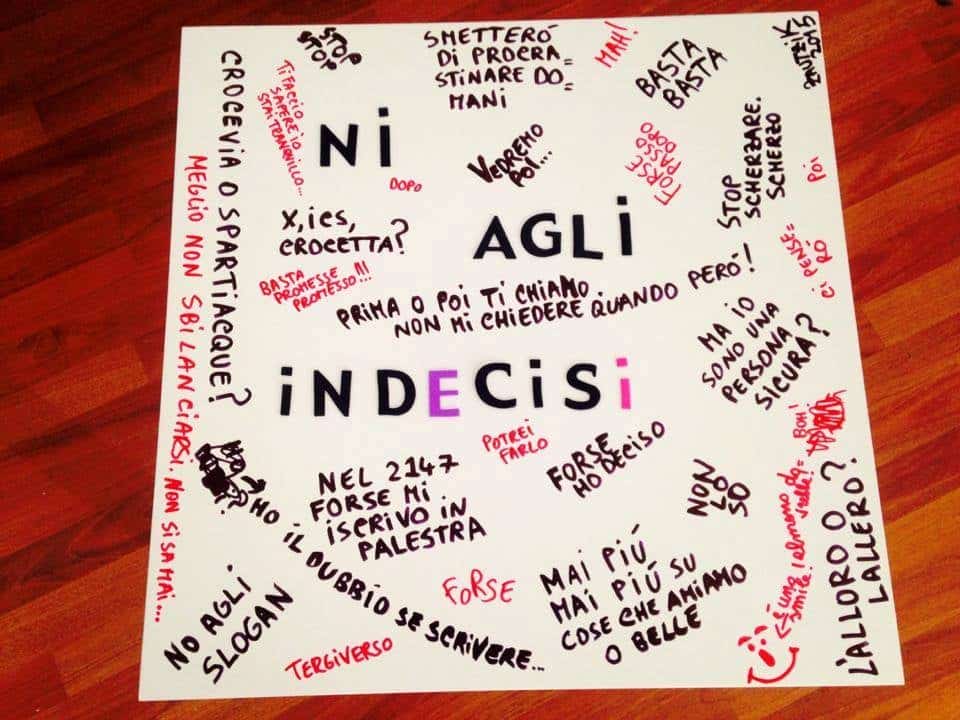 STOP
STOP
SMETTERÓ
DI PROCRA=
STINARE DO=
MANI
MAH!
BASTA
BASTA
2015
CROCEVIA O SPARTIACQUE?
MEGLIO NON SBILANCIARSI. NON SI SA MAI...
TI FACCIO
SAPERE IO
STAI TRANQUILLO...
Ni
DOPO
VEDREMO
POI...
FORSE
PASSO
DOPO
STOP
SCHERZARE.
SCHERZO
POI
X, ies,
CROCETTA?
AGLi
BASTA
PROMESSE
PROMESSO!!!
PRIMA O POI TI CHIAMO.
NON MI CHIEDERE QUANDO PERÓ!
Ci PENSE=
RÓ
MA IO
SONO UNA
PERSONA
SICURA?
iNDECiSi
POTREI
FARLO
FORSE
HO DECISO
BOH!
NEL 2147
FORSE MI
ISCRIVO IN
PALESTRA
NON
LO
SO
HO IL DUBBIO SE SCRIVERE...
NO AGLI
SLOGAN
FORSE
TERGIVERSO
MAI PIÚ
MAI PIÚ SU
COSE CHE AMIAMO
O BELLE
È uno
smile! almeno
L'ALLORO O
L'ALLERO?